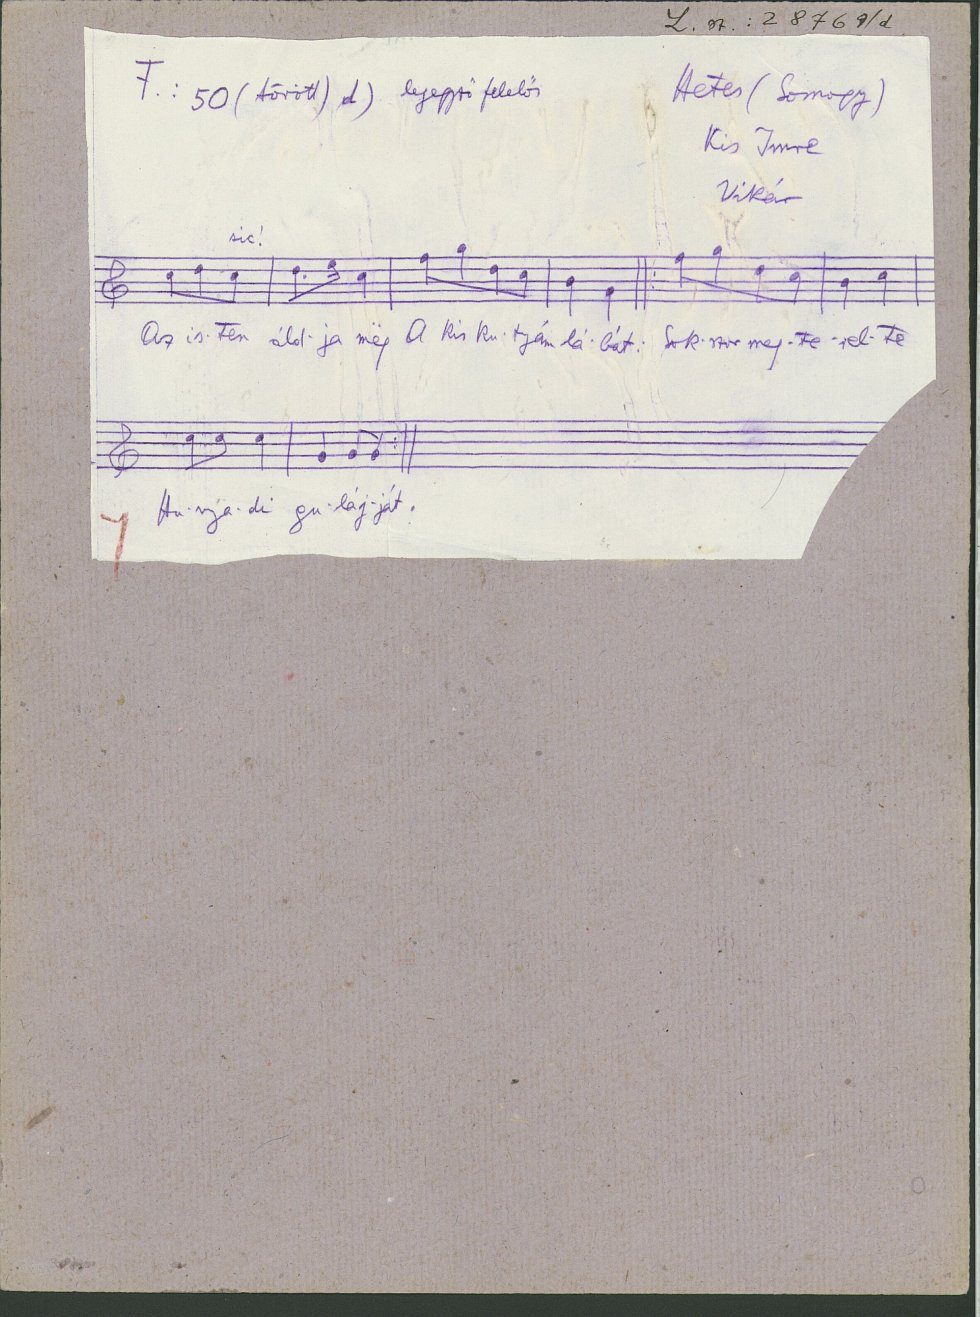 L. sz.: 28769/d
F.: 50 (törött) d)
Hetes (Somogy)
Kis Imre
Vikár
sic!
Az is-ten áld-ja még A kis ku-tyám lá-bát: Sok-szor meg-te-rel-te
Hu-nya-di gu-láj-ját.